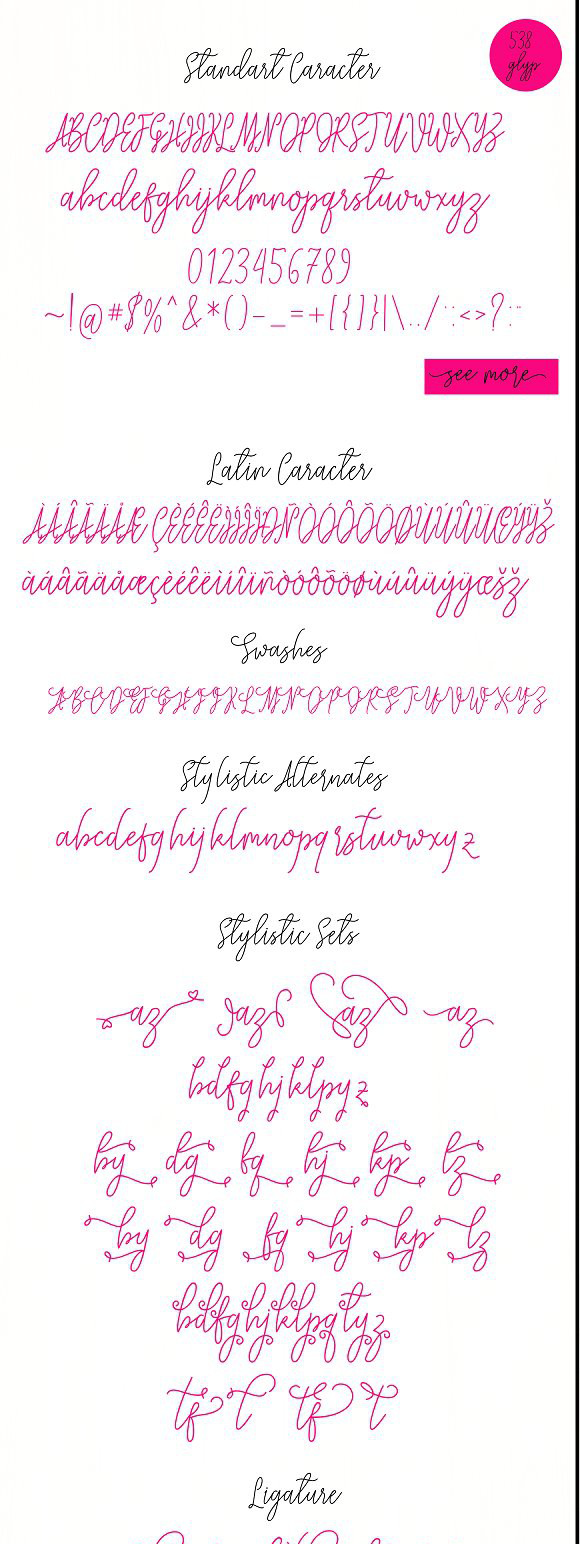 538
glyp
Standart Caracter
ABCDEFGHIJKLMNOPQRSTUVWXYZ
abcdefghijklmnopqrstuvwxyz
0123456789
~!@#$%^&*()-_=+[{]}|\../::<>?:¨
see more
Latin Caracter
ÀÁÂÃÄÅÆÇÈÉÊËÌÍÎÏÐÑÒÓÔÕÖØÙÚÛÜŒÝŸŽ
àáâãäåæçèéêëìíîïñòóôõöøùúûüýÿœšž
Swashes
ABCDEFGHIJKLMNOPQRSTUVWXYZ
Stylistic Alternates
abcdefghijklmnopqrstuvwxyz
Stylistic Sets
az az az az
bdfghjklpyz
by dg fq hj kp lz
by dg fq hj kp lz
bdfghjklpqtyz
tf t tf t
Ligature